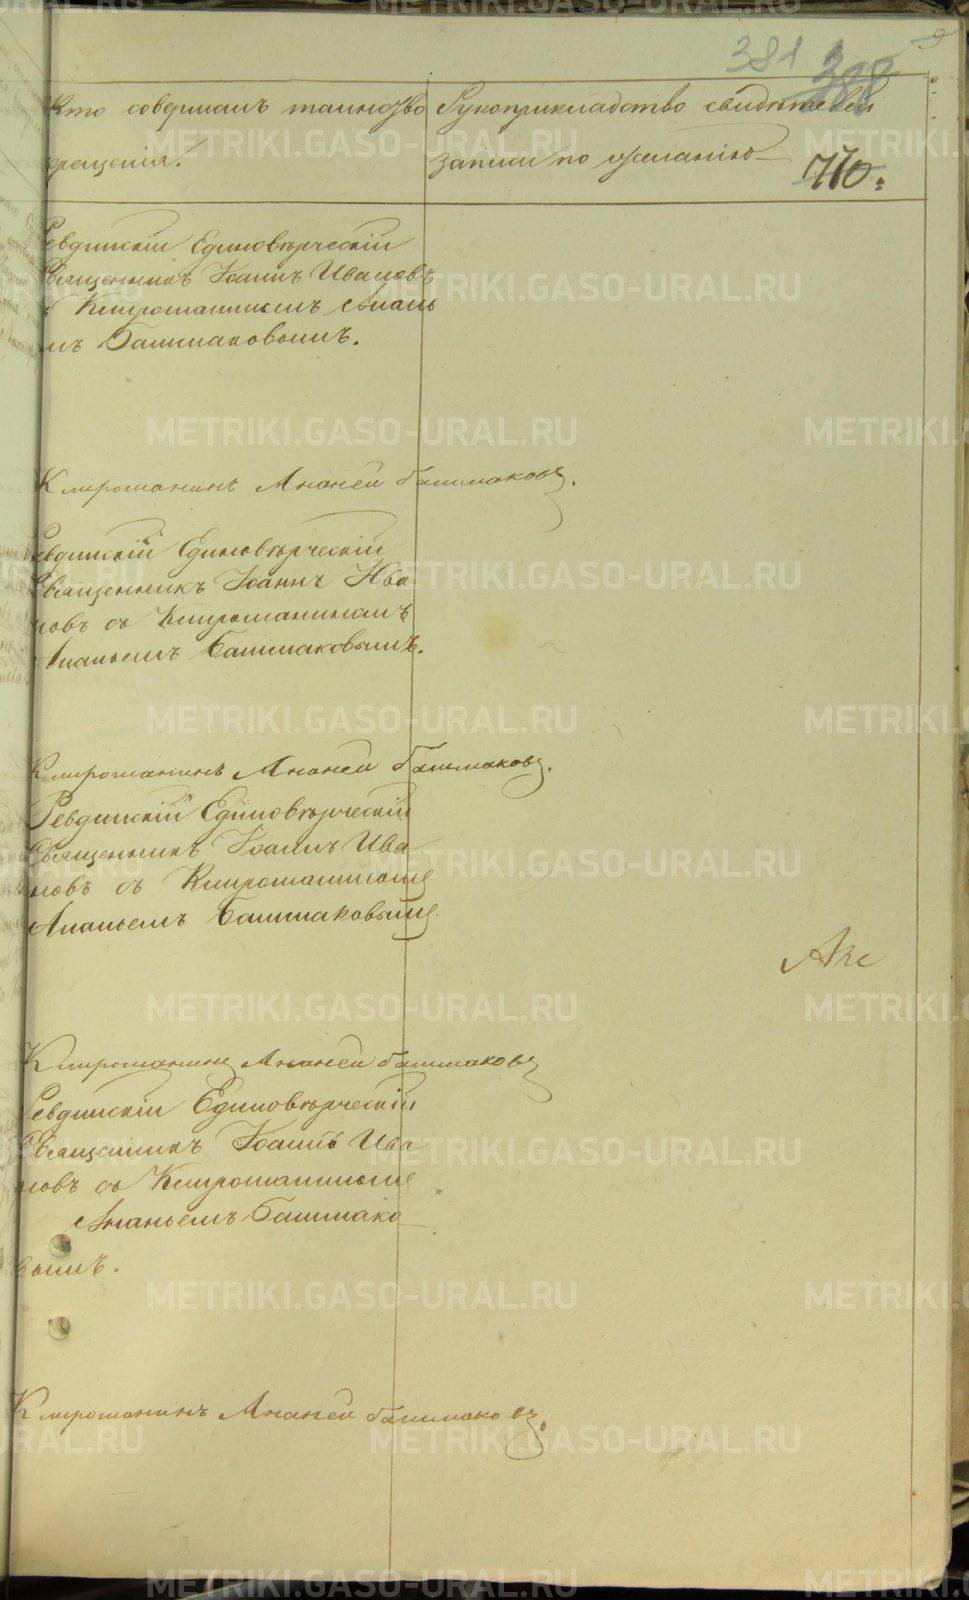 381 388
9
Кто совершалъ таинство
крещенія.
Рукоприкладство свидѣтелей
записи по желанію
770.
Ревдинскій Единовѣрческій
Священникъ Іоаннъ Ивановъ
съ Клирошаниномъ Анань
мъ Башмаковымъ.
Клирошанинъ Ананей Башмаковъ.
Ревдинскій Единовѣрческій
Священникъ Іоаннъ Ива
новъ съ Клирошаниномъ
Ананьемъ Башмаковымъ.
Клирошанинъ Ананей Башмаковъ.
Ревдинскій Единовѣрческій
Священникъ Іоаннъ Ива
новъ съ Клирошаниномъ
Ананьемъ Башмаковымъ
Клирошанинъ Ананей Башмаковъ
Ревдинскій Единовѣрческій
Священникъ Іоаннъ Ива
новъ съ Клирошаниномъ
Ананьемъ Башмако
вымъ.
Клирошанинъ Ананей Башмаковъ.
METRIKI.GASO-URAL.RU